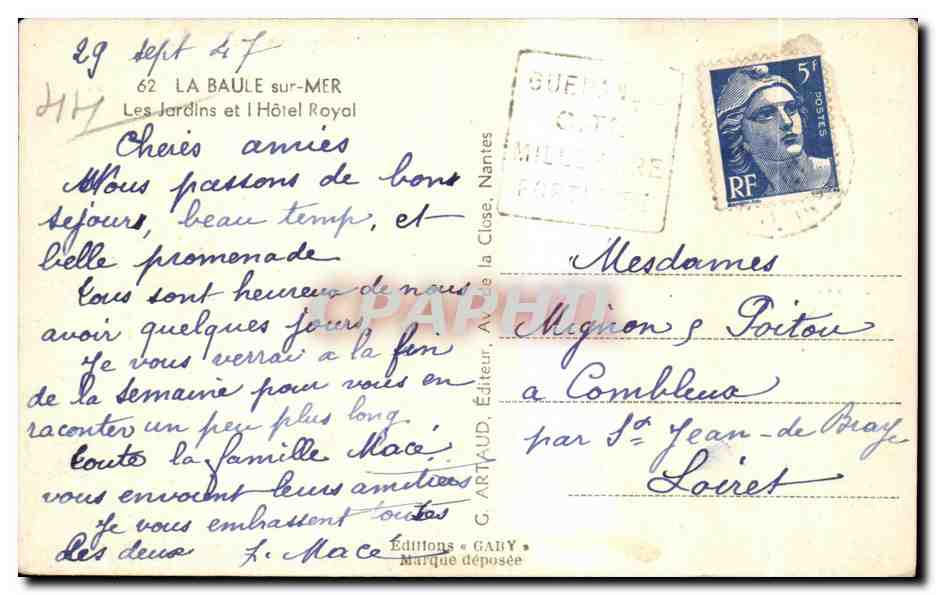 29 sept 47
62 LA BAULE sur-MER
44
Les Jardins et l Hôtel Royal
Cherès amiès
Nous passons de bons
séjours, beau temp, et
belle promenade
Tous sont heureux de nous
avoir quelques jours
Je vous verrai a la fin
de la semaine pour vous en
raconter un peu plus long
toute la famille Macé
vous envoient leurs amities
Je vous embrassent toutes
les deux L. Macé
G. ARTAUD, Éditeur, Av. de la Close, Nantes
Éditions « GABY »
Marque déposée
CPAPHIL
MILL RE
5F
POSTES
RF
Mesdames
Mignon & Poitou
a Combleux
par St Jean-de Braye
Loiret